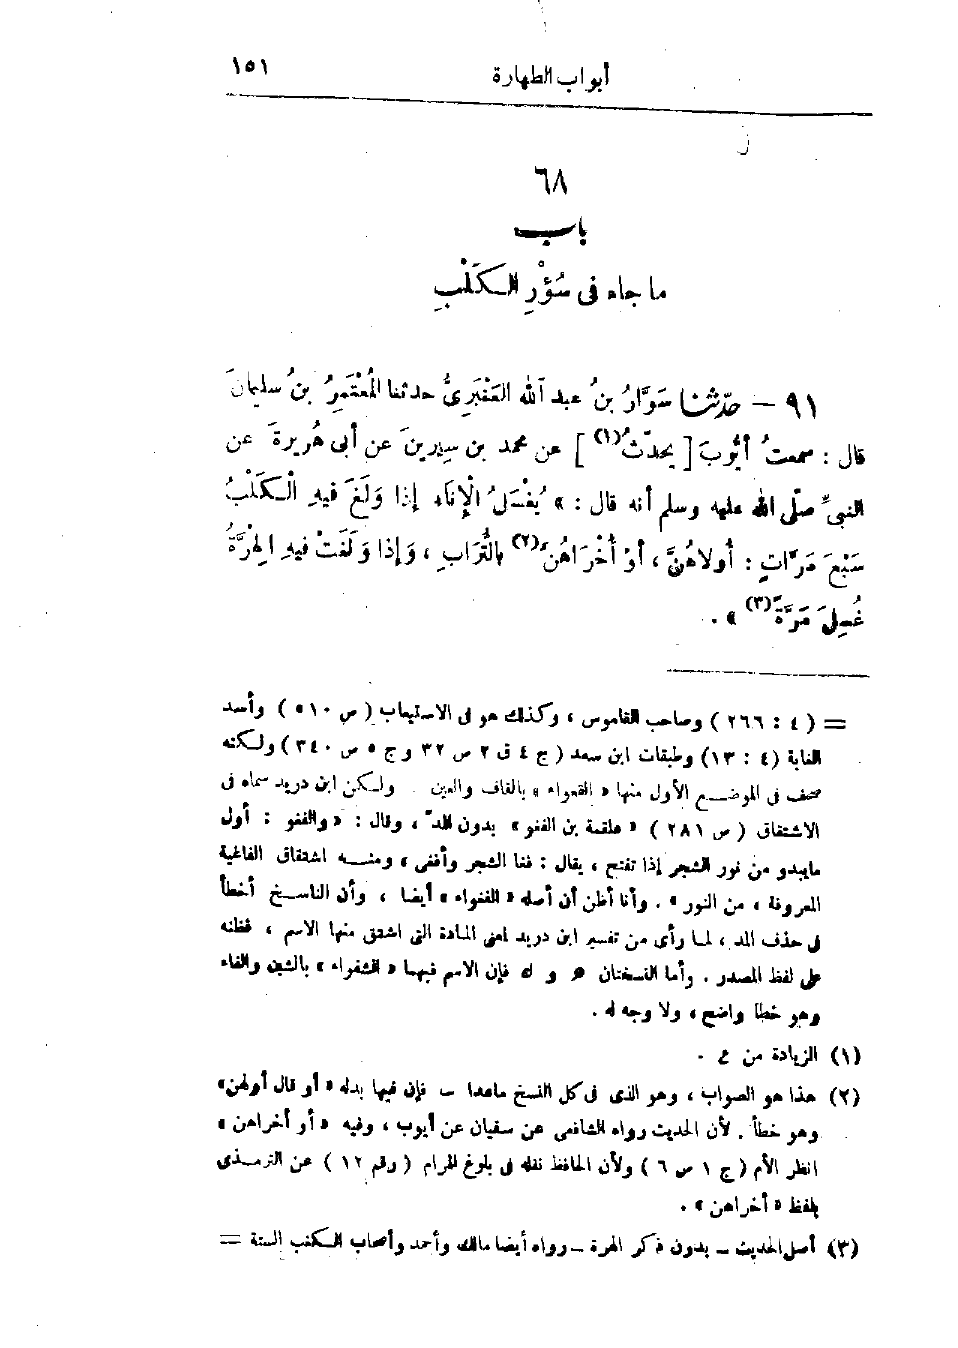 أبواب الطهارة ١٥١
٦٨
باب
ما جاء فى سُؤْرِ الكَلْبِ
٩١ — حدّثنا سَوَّارُ بنُ عبد الله العَنْبَرِىُّ حدثنا المُعْتَمِرُ بنُ سليمانَ
قال : سمعتُ أيُّوبَ [ يحدّثُ(١) ] عن محمد بن سِيرِينَ عن أبى هُريرةَ عن
النبىِّ صلّى الله عليه وسلم أنه قال : « يُغْسَلُ الْإِنَاءُ إِذَا وَلَغَ فيهِ الْكَلْبُ
سَبْعَ مَرَّاتٍ : أُولَاهُنَّ ، أَوْ أُخْرَاهُنَّ(٢) بِالتُّرَابِ ، وَإِذَا وَلَغَتْ فيهِ الهِرَّةُ
غُسِلَ مَرَّةً(٣) » .
= ( ٤ : ٢٦٦ ) وصاحب القاموس ، وكذلك هو فى الاستيعاب ( ص ٥١٠ ) وأسد
الغابة ( ٤ : ١٣ ) وطبقات ابن سعد ( ج ٤ ق ٢ ص ٣٢ و ج ٥ ص ٣٤٠ ) ولكنه
صحف فى الموضع الأول منها « القعواء » بالقاف والعين . ولكن ابن دريد سماه فى
الاشتقاق ( ص ٢٨١ ) « علقمة بن الفغو » بدون المدّ ، وقال : « والفغو : أول
مايبدو من نور الشجر إذا تفتح ، يقال : فغا الشجر وأفغى » ومنه اشتقاق الفاغية
المعروفة ، من النور » . وأنا أظن أن أصله « الفغواء » أيضا ، وأن الناسخ أخطأ
فى حذف المد ، لما رأى من تفسير ابن دريد لمعنى المادة التى اشتق منها الاسم ، فظنه
على لفظ المصدر . وأما النسختان هـ و ك فإن الاسم فيهما « الشفواء » بالشين والفاء
وهو خطأ واضح ، ولا وجه له .
(١) الزيادة من ع .
(٢) هذا هو الصواب ، وهو الذى فى كل النسخ ماعدا ب فإن فيها بدله « أو قال أولهن »
وهو خطأ . لأن الحديث رواه الشافعى عن سفيان عن أيوب ، وفيه « أو أخراهن »
انظر الأم ( ج ١ ص ٦ ) ولأن الحافظ نقله فى بلوغ المرام ( رقم ١٢ ) عن الترمذى
بلفظ « أخراهن » .
(٣) أصل الحديث ـ بدون ذكر الهرة ـ رواه أيضا مالك وأحمد وأصحاب الكتب الستة =